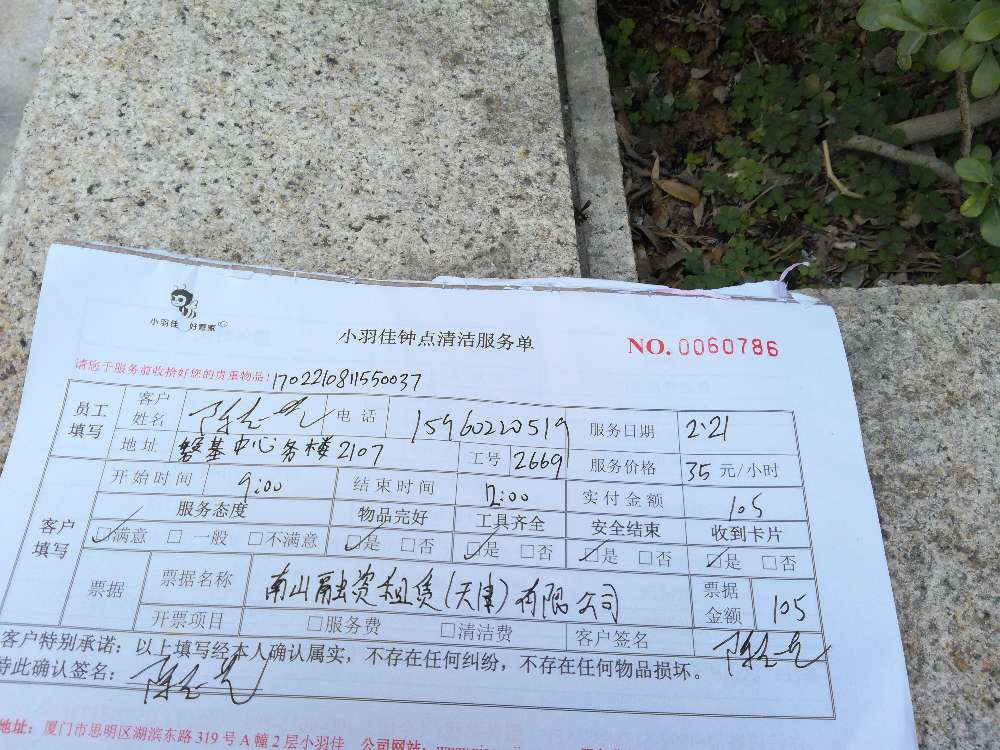 小羽佳 好管家
小羽佳钟点清洁服务单
NO. 0060786
请您于服务前收拾好您的贵重物品！1702210811550037
员工填写 客户姓名 电话 15960220519 服务日期 2.21
地址 磐基中心务楼2107 工号 2669 服务价格 35 元/小时
开始时间 9:00 结束时间 12:00 实付金额 105
客户填写 服务态度 物品完好 工具齐全 安全结束 收到卡片
☑满意 □一般 □不满意 ☑是 □否 ☑是 □否 ☑是 □否 ☑是 □否
票据 票据名称 南山融资租赁(天津)有限公司 票据金额 105
开票项目 □服务费 □清洁费 客户签名
客户特别承诺：以上填写经本人确认属实，不存在任何纠纷，不存在任何物品损坏。
特此确认签名：
地址：厦门市思明区湖滨东路 319 号 A 幢 2 层小羽佳 公司网站：